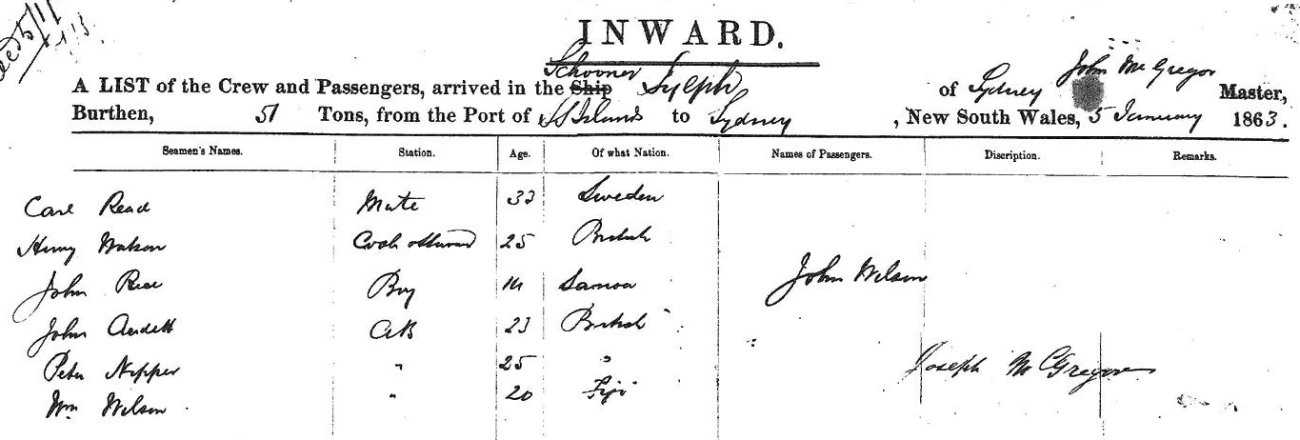 INWARD.
Schooner John McGregor
A LIST of the Crew and Passengers, arrived in the Ship Sylph of Sydney Master,
Burthen, 51 Tons, from the Port of SS Islands to Sydney, New South Wales, 5 January 1863.
Seamen's Names. Station. Age. Of what Nation. Names of Passengers. Discription. Remarks.
Carl Read Mate 33 Sweden
Henry Watson Cook 25 British
John Boy 14 Samoa John Wilson
John AB 23 British
Peter Nipper " 25 " Joseph McGregor
Wm Wilson " 20 Fiji